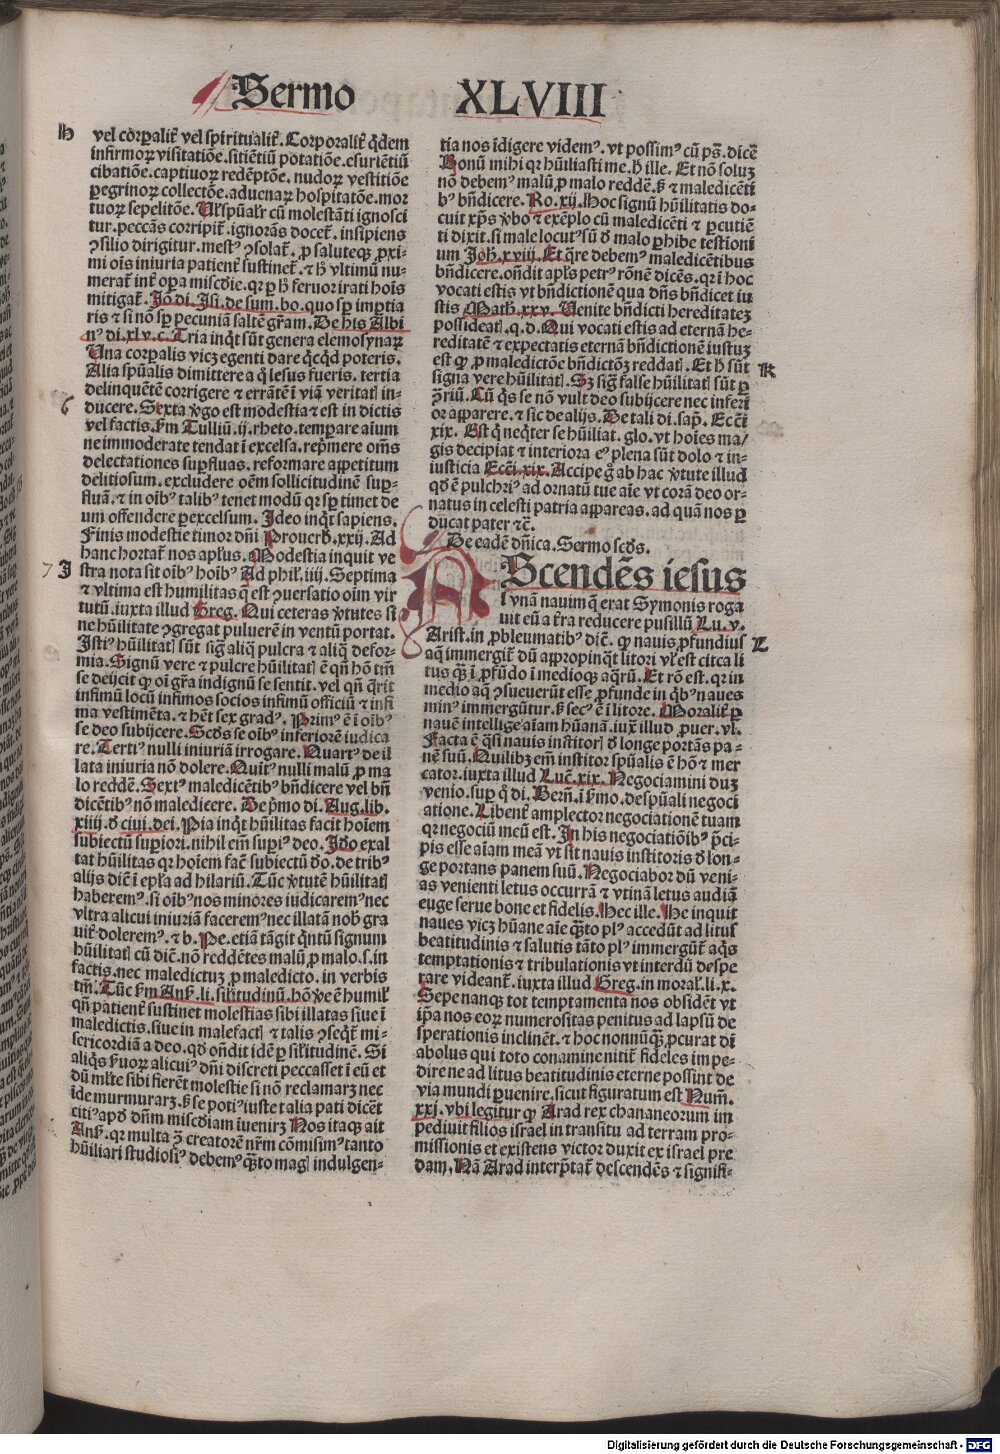 Sermo XLVIII
H
vel corꝑalit̃ vel spiritualit̃. Corporalit̃ q̃dem
infirmoꝝ visitatiõe. sitiẽtiũ potatiõe. esuriẽtiũ
cibatiõe. captiuoꝝ redẽptõe. nudoꝝ vestitiõe
ꝑegrinoꝝ collectõe. aduenaꝝ hospitatõe. mor
tuoꝝ sepelitõe. Ul̃ sp̃ual̃r cũ molestãti ignosci
tur. peccãs corripit̃. ignorãs docet̃. insipiens
ꝯsilio dirigitur. mestꝰ ꝯsolat̃. ꝓ saluteqꝫ ꝓxi-
mi oĩs iniuria patient̃ sustinet̃. ⁊ h̃ vltimũ nu-
merat̃ int̃ oꝑa mĩscđie. qꝛ ꝑ h̃ feruor irati hoĩs
mitigat̃. Jõ di. Jsi. de sum. bo. quo sꝑ imꝑtia
ris ⁊ si nõ sꝑ pecuniã saltẽ gr̃am. De his Albi
nꝰ di. xl v. c. Tria inq̃t sũt genera elemosynaꝝ
Una corꝑalis vicꝫ egenti dare q̃cq̃d poteris.
Alia sp̃ualis dimittere a q̃ lesus fueris. tertia
delinquẽtẽ corrigere ⁊ errãtẽ ĩ viã veritatꝭ in-
6
ducere. Sexta v̊go est modestia ⁊ est in dictis
vel factis. ẜm Tulliũ. ij. rheto. temꝑare aium
ne immoderate tendat ĩ excelsa. rep̃mere om̃s
delectationes suꝑfluas. reformare appetitum
delitiosum. excludere oẽm sollicitudinẽ suꝑ-
fluã. ⁊ in oĩbꝰ talibꝰ tenet modũ qꝛ sꝑ timet de
um offendere ꝑ excelsum. Jdeo inq̃t sapiens.
Finis modestie timor dñi Prouerb̃. xxij. Ad
hanc hortat̃ nos apl̃us. Modestia inquit ve
7 J
stra nota sit oĩbꝰ hoĩbꝰ Ad phil̃. iiij. Septima
⁊ vltima est humilitas q̃ est ꝯuersatio oĩm vir
tutũ. iuxta illud Greg. Qui ceteras v̊tutes si
ne hũilitate ꝯgregat puluerẽ in ventũ portat.
Jstiꝰ hũilitatꝭ sũt sig̃ aliq̃ pulcra ⁊ aliq̃ defor-
mia. Signũ vere ⁊ pulcre hũilitatꝭ ẽ qñ hõ tm̃
se deijcit ꝙ oĩ gr̃a indignũ se sentit. vel qñ q̃rit
infimũ locũ infimos socios infimũ officiũ ⁊ infi
ma vestimẽta. ⁊ hẽt sex gradꝰ. Primꝰ ẽ ĩ oĩbꝰ
se deo subijcere. Scđs se oĩbꝰ inferiorẽ iudica
re. Tertiꝰ nulli iniuriã irrogare. Quartꝰ de il
lata iniuria nõ dolere. Quĩtꝰ nulli malũ ꝓ ma
lo reddẽ. Sextꝰ maledicẽtibꝰ bñdicere vel bñ
dicẽtibꝰ nõ maledicere. De p̃mo di. Aug. lib.
xiiij. đ ciui. dei. Pia inq̃t hũilitas facit hoĩem
subiectũ suꝑiori. nihil em̃ suꝑiꝰ deo. Jđo exal
tat hũilitas qꝛ hoĩem fac̃ subiectũ đo. de tribꝰ
alijs dic̃ ĩ epl̃a ad hilariũ. Tũc v̊tutẽ hũilitatꝭ
haberemꝰ. si oĩbꝰ nos minores iudicaremꝰ nec
vltra alicui iniuriã faceremꝰ nec illatã nob̃ gra
uit̃ doleremꝰ. ⁊ b. Pe. etiã tãgit q̃ntũ signum
hũilitatꝭ cũ dic̃. nõ reddẽtes malũ ꝓ malo. s. in
factis. nec maledictuꝫ ꝓ maledicto. in verbis
tm̃. Tũc ẜm Anẜ. li. sil̃itudinũ. hõ v̊e ẽ humil̃
qñ patient̃ sustinet molestias sibi illatas siue ĩ
maledictis. siue in malefactꝭ ⁊ talis ꝯseq̃t̃ mi-
sericordiã a deo. qđ oñdit idẽ ꝑ sil̃itudinẽ. Si
aliq̃s ẜuoꝝ alicuiꝰ dñi discreti peccasset ĩ eũ et
dũ ml̃te sibi fierẽt molestie si nõ reclamaꝝ nec
ĩde murmuraꝝ. ẜ se potiꝰ iuste talia pati dicẽt
citiꝰ apđ dñm miscđiam ĩuenirꝫ Nos itaqꝫ ait
Anẜ. qꝛ multa ꝯ̃ creatorẽ nr̃m cõmisimꝰ tanto
hũiliari studiosiꝰ debemꝰ q̃ꝫto magꝭ indulgen-
tia nos ĩdigere videmꝰ. vt possimꝰ cũ p̃s. dicẽ
Bonũ mihi qꝛ hũiliasti me. h̃ ille. Et nõ soluꝫ
nõ debemꝰ malũ ꝓ malo reddẽ. ẜ ⁊ maledicẽti
bꝰ bñdicere. Ro. xij. Hoc signũ hũilitatis do-
cuit xp̃s v̊bo ⁊ exẽplo cũ maledicẽti ⁊ ꝑcutiẽ
ti dixit. si male locutꝰ sũ đ malo ꝑhibe testioni
um Joh̃. xviij. Et q̃re debemꝰ maledicẽtibus
bñdicere. oñdit apl̃s petrꝰ rõnẽ dicẽs. qꝛ ĩ hoc
vocati estis vt bñdictionẽ qua dñs bñdicet iu
stis Math̃. xxv. Uenite bñdicti hereditateꝫ
possideatꝭ. q. d. Qui vocati estis ad eternã he-
reditatẽ ⁊ expectatis eternã bñdictionẽ iustuꝫ
est ꝙ ꝓ maledictõe bñdictõꝫ reddatꝭ. Et h̃ sũt
K
signa vere hũilitatꝭ. Sꝫ sig̃ false hũilitatꝭ sũt ꝑ
ꝯ̃riũ. Cũ q̃s se nõ vult deo subijcere nec inferi
or apparere. ⁊ sic de alijs. De tali di. sap̃. Ecc̃i
xix. Est q̃ neq̃ter se hũiliat. glo. vt hoĩes ma/
gis decipiat ⁊ interiora eꝰ plena sũt dolo ⁊ in-
iusticia Ecc̃i. xix. Accipe g̊ ab hac v̊tute illud
qđ ẽ pulchriꝰ ad ornatũ tue aĩe vt corã deo or-
natus in celesti patria appareas. ad quã nos ꝑ
ducat pater ⁊c̃.
De eadẽ dñica. Sermo scđs.
AScendẽs iesus
ĩ vnã nauim q̃ erat Symonis roga
uit eũ a t̃ra reducere pusillũ Lu. v.
L
Arist. in ꝓbleumatibꝰ dic̃. ꝙ nauis ꝓfundius
aq̃ immergit̃ dũ appropinq̃t litori vl̃ est circa li
tus q̃ꝫ ĩ ꝓfũdo ĩ medioqꝫ aq̃rũ. Et rõ est. qꝛ in
medio aq̃ ꝯsueuerũt esse ꝓfunde in q̃bꝰ naues
minꝰ immergũtur. ẜ secꝰ ẽ ĩ litore. Moralit̃ ꝑ
nauẽ intellige aĩam hũanã. iux̃ illud ꝓuer. vl̃.
Facta ẽ q̃si nauis institorꝭ đ longe portãs pa-
nẽ suũ. Quilibꝫ em̃ institor sp̃ualis ẽ hõ ⁊ mer
cator. iuxta illud Luc̃. xix. Negociamini duꝫ
venio. suꝑ q̃ di. Berñ. ĩ ẜmo. de sp̃uali negoci
atione. Libent̃ amplector negociationẽ tuam
qꝛ negociũ meũ est. Jn his negociatiõibꝰ p̃ci-
pis esse aĩam meã vt sit nauis institoris đ lon-
ge portans panem suũ. Negociabor dũ veni-
as venienti letus occurrã ⁊ vtinã letus audiã
euge serue bone et fidelis. Hec ille. He inquit
naues vicꝫ hũane aĩe q̃ꝫto plꝰ accedũt ad litus
beatitudinis ⁊ salutis tãto plꝰ immergũt̃ aq̃s
temptationis ⁊ tribulationis vt interdũ despe
rare videant̃. iuxta illud Greg. in moral̃. li. x.
Sepe nanqꝫ tot temptamenta nos obsidẽt vt
ip̃a nos eoꝝ numerositas penitus ad lapsũ de
sperationis inclinẽt. ⁊ hoc nonnũq̃ꝫ ꝓcurat di
abolus qui toto conamine nitit̃ fideles impe-
dire ne ad litus beatitudinis eterne possint de
via mundi ꝑuenire. sicut figuratum est Num̃.
xxj. vbi legitur ꝙ Arad rex chananeorum im
pediuit filios israel in transitu ad terram pro-
missionis et existens victor duxit ex israel pre
dam. Nã Arad interp̃tat̃ descendẽs ⁊ signifi-
Digitalisierung gefördert durch die Deutsche Forschungsgemeinschaft - DFG